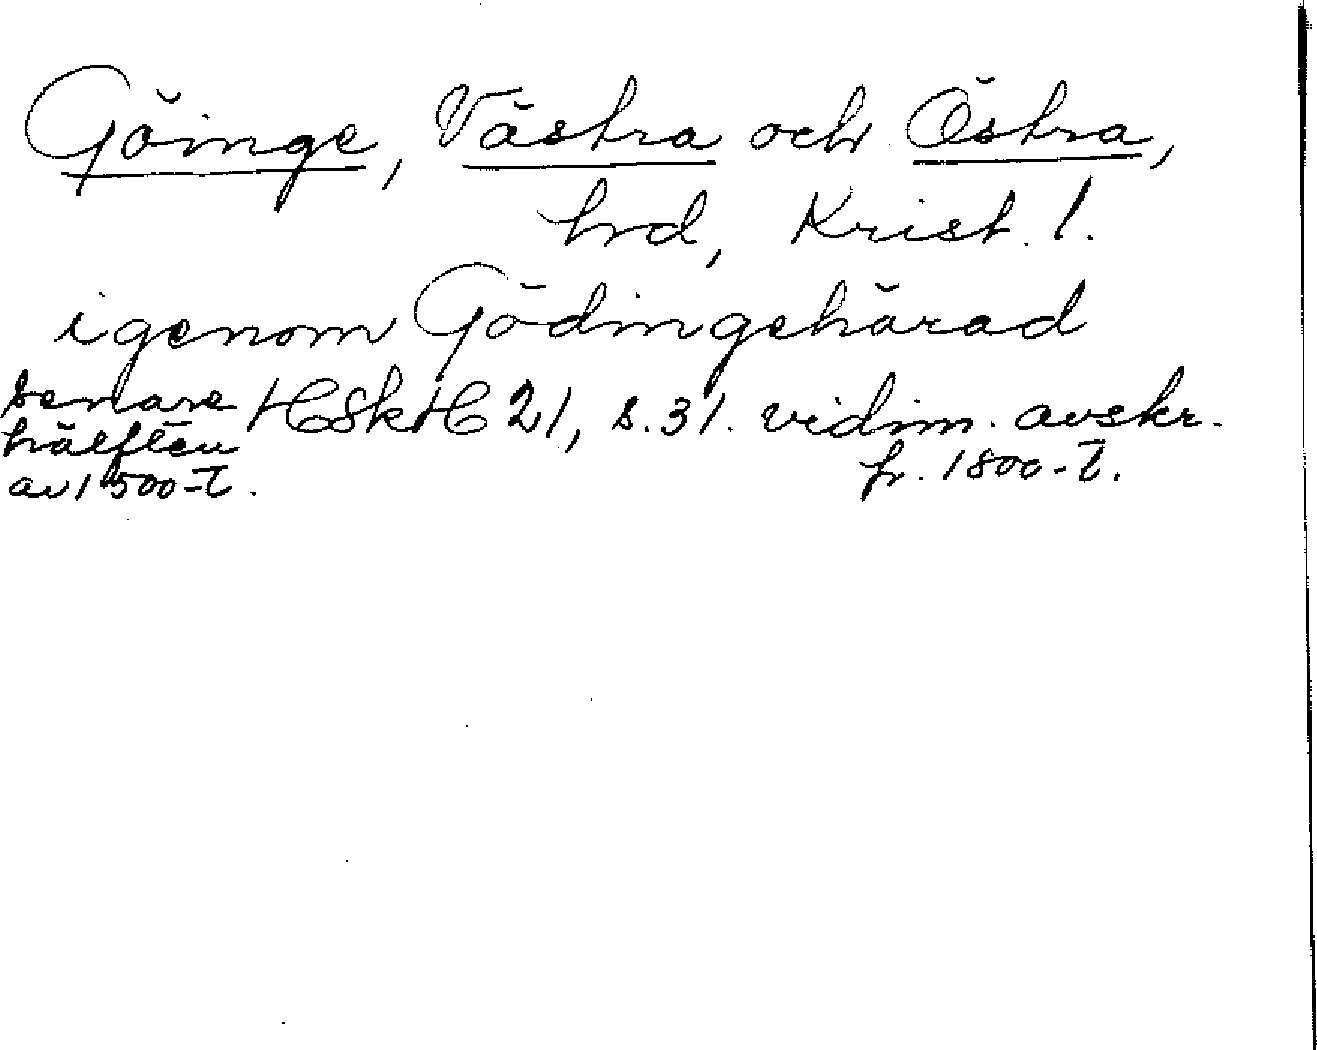 Göinge, Västra och Östra,
hrd, Krist. l.
igenom Gödingehärad
senare HSkH 21, s. 31. vidim. avskr.
hälften fr. 1800-t.
av 1500-t.